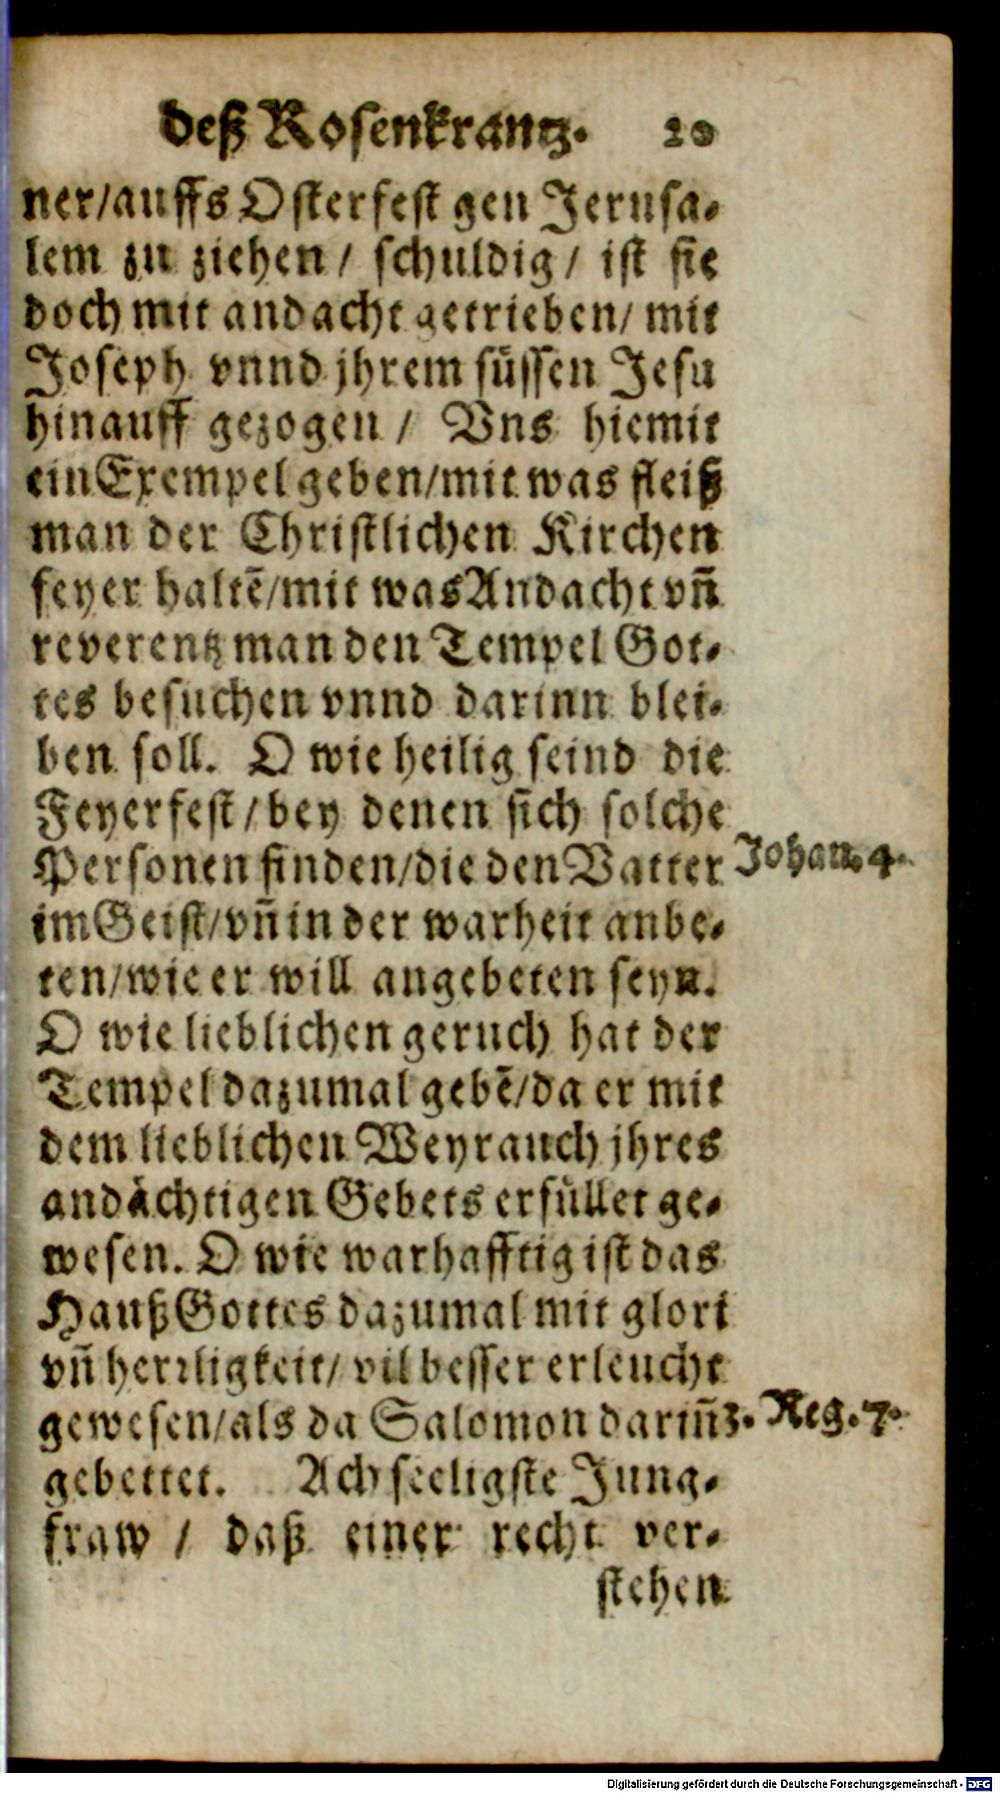 deß Rosenkrantz. 20
ner/auffs Osterfest gen Jerusa-
lem zu ziehen / schuldig / ist sie
doch mit andacht getrieben/ mit
Joseph vnnd jhrem süssen Jesu
hinauff gezogen / Vns hiemit
ein Exempel geben/mit was fleiß
man der Christlichen Kirchen
feyer haltē/mit was Andacht vn̄
reverentz man den Tempel Got-
tes besuchen vnnd darinn blei-
ben soll. O wie heilig seind die
Feyerfest/bey denen sich solche
Personen finden/die den Vatter Johan. 4.
im Geist/vn̄ in der warheit anbe-
ten/wie er will angebeten seyn.
O wie lieblichen geruch hat der
Tempel dazumal gebē/da er mit
dem lieblichen Weyrauch jhres
andächtigen Gebets erfüllet ge-
wesen. O wie warhafftig ist das
Hauß Gottes dazumal mit glori
vn̄ herrligkeit/ vil besser erleucht
gewesen/als da Salomon darin̄ 3. Reg. 7.
gebettet. Ach seeligste Jung-
fraw / daß einer recht ver-
stehen
Digitalisierung gefördert durch die Deutsche Forschungsgemeinschaft - DFG